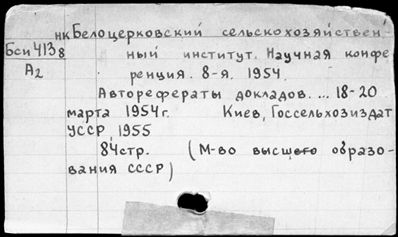 нк Белоцерковский сельскохозяйствен-
Бси4138 ный институт. Научная конфе
А2 ренция. 8-я. 1954.
Авторефераты докладов. ... 18-20
марта 1954г. Киев, Госсельхозиздат
УССР, 1955
84стр. (М-во высшего образо-
вания СССР)